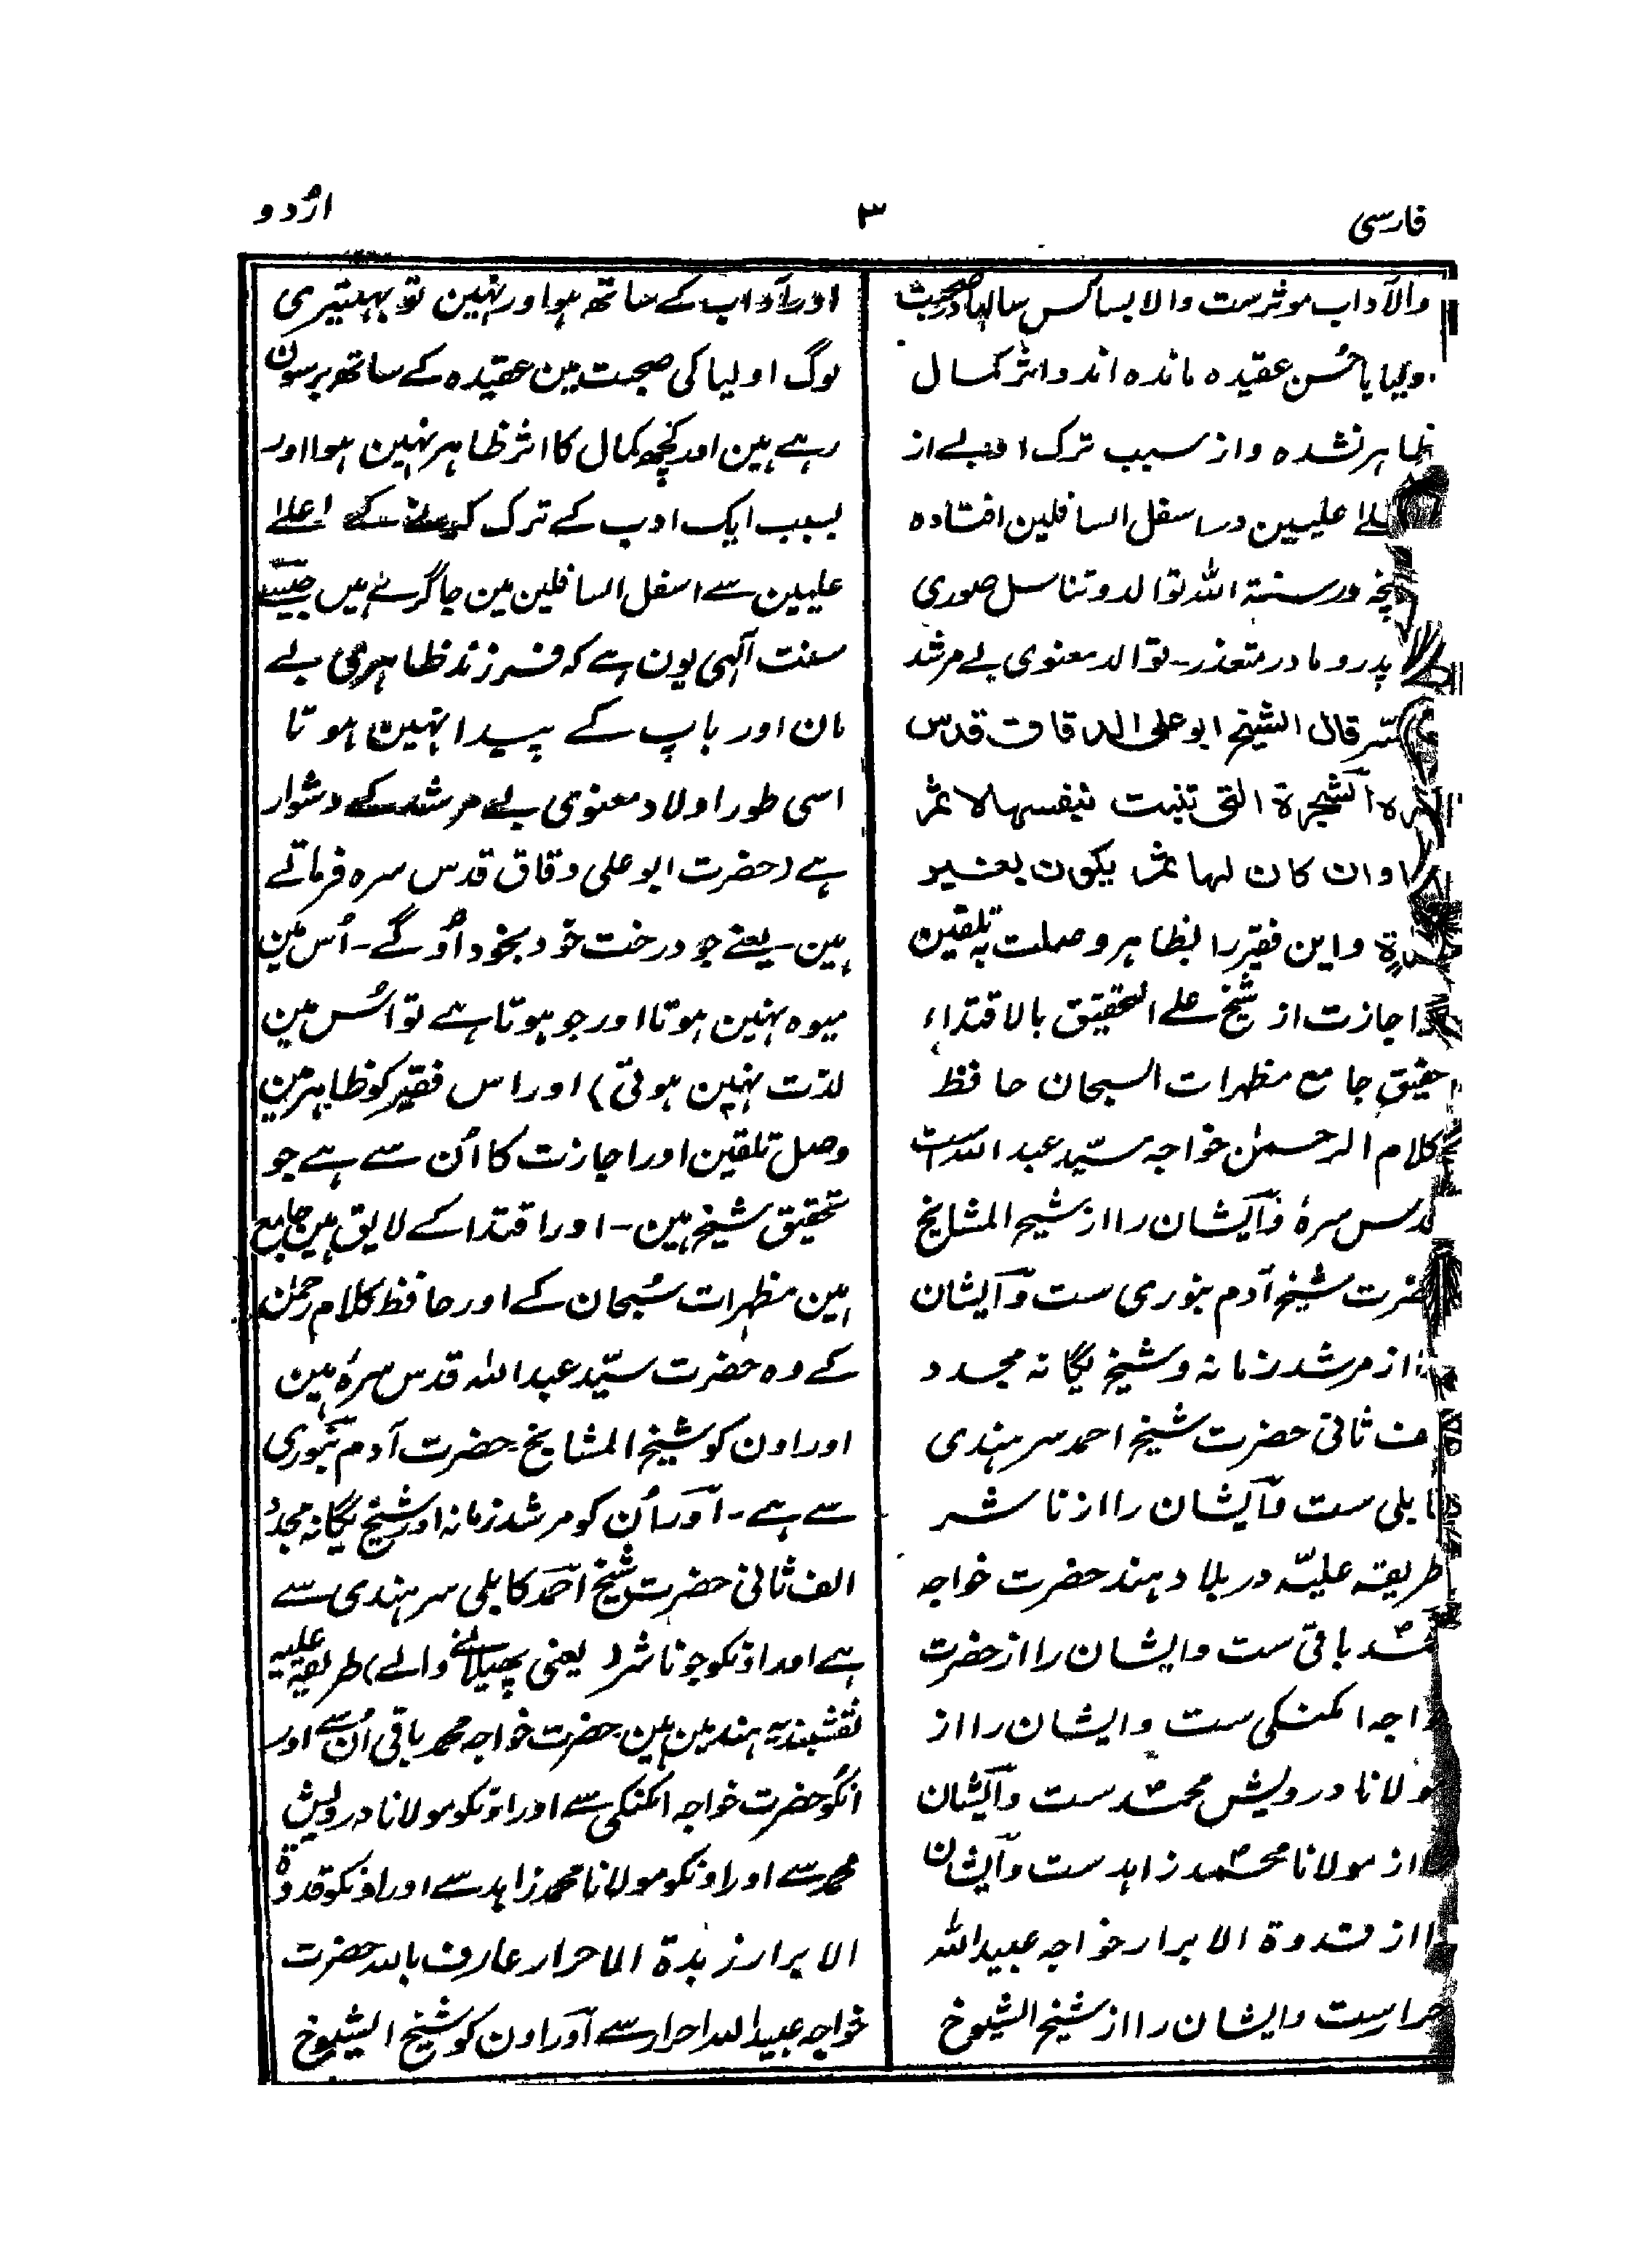 فارسی
۳
اُردو
والآداب موثرست والا بساکس سالہا در صحبت
اولیا با حُسن عقیدہ ماندہ اند و اثر کمال
ظاہر نشدہ و از سبب ترک ادبے از
علیین در اسفل السافلین افتادہ
در سنۃ اللہ توالد و تناسل صوری
پدر و مادر متعذر۔ توالد معنوی بے مرشد
قال الشیخ ابو علی الدقاق قدس
الشجرۃ التی تنبت بنفسہا لا ثمر
وان کان لہا ثمر یکون بغیر
و این فقیر را بظاہر وصلت بہ تلقین
اجازت از شیخ علے التحقیق بالاقتداء
حقیق جامع مظہرات السبحان حافظ
کلام الرحمٰن خواجہ سیّد عبد اللہ است
قدس سرہٗ وَآیشان را از شیخ المشایخ
حضرت شیخ آدم بنوری ست وَآیشان
را از مرشد زمانہ و شیخ یگانہ مجدد
الف ثانی حضرت شیخ احمد سرہندی
کابلی ست وَآیشان را از ناشر
طریقہ علیّہ در بلاد ہند حضرت خواجہ
محمد باقی ست و ایشان را از حضرت
خواجہ امکنکی ست و ایشان را از
مولانا درویش محمد ست وَآیشان
را از مولانا محمد زاہد ست وَآیشان
را از قدوۃ الابرار خواجہ عبید اللہ
احرار ست و ایشان را از شیخ الشیوخ
اور آداب کے ساتھ ہو اور نہین تو بہتیری
لوگ اولیا کی صحبت مین عقیدہ کے ساتھ برسون
رہے ہین اور کچھ کمال کا اثر ظاہر نہین ہوا اور
بسبب ایک ادب کے ترک کرنے کے اعلاے
علیین سے اسفل السافلین مین جا گرے ہیں جیسے
سنت آلہی یون ہے کہ فرزند ظاہری بے
مان اور باپ کے پیدا نہین ہوتا
اسی طور اولاد معنوی بے مرشد کے دشوار
ہے (حضرت ابو علی دقاق قدس سرہ فرماتے
ہین۔ یعنے جو درخت خود بخود اُوگے۔ اُس مین
میوہ نہین ہوتا اور جو ہوتا ہے تو اُس مین
لذت نہین ہوتی) اور اس فقیر کو ظاہر مین
وصل تلقین اور اجازت کا اُن سے ہے جو
تحقیق شیخ ہین۔ اور اقتدا کے لایق ہین جامع
ہین مظہرات سُبحان کے اور حافظ کلام رحمٰن
کے وہ حضرت سیّد عبد اللہ قدس سرہٗ ہین
اور اون کو شیخ المشایخ حضرت آدم بنوری
سے ہے۔ اَور اُن کو مرشد زمانہ اور شیخ یگانہ مجدد
الف ثانی حضرت شیخ احمد کابلی سرہندی سے
ہے اور اونکو جو ناشر (یعنی پھیلانے والے) طریقہ علیہ
نقشبندیہ ہند مین ہین حضرت خواجہ محمد باقی اُن سے اور
انکو حضرت خواجہ امکنکی سے اور اونکو مولانا درویش
محمد سے اور اونکو مولانا محمد زاہد سے اور اونکو قدوۃ
الابرار زبدۃ الاحرار عارف باللہ حضرت
خواجہ عبید اللہ احرار سے اَور اون کو شیخ الشیوخ